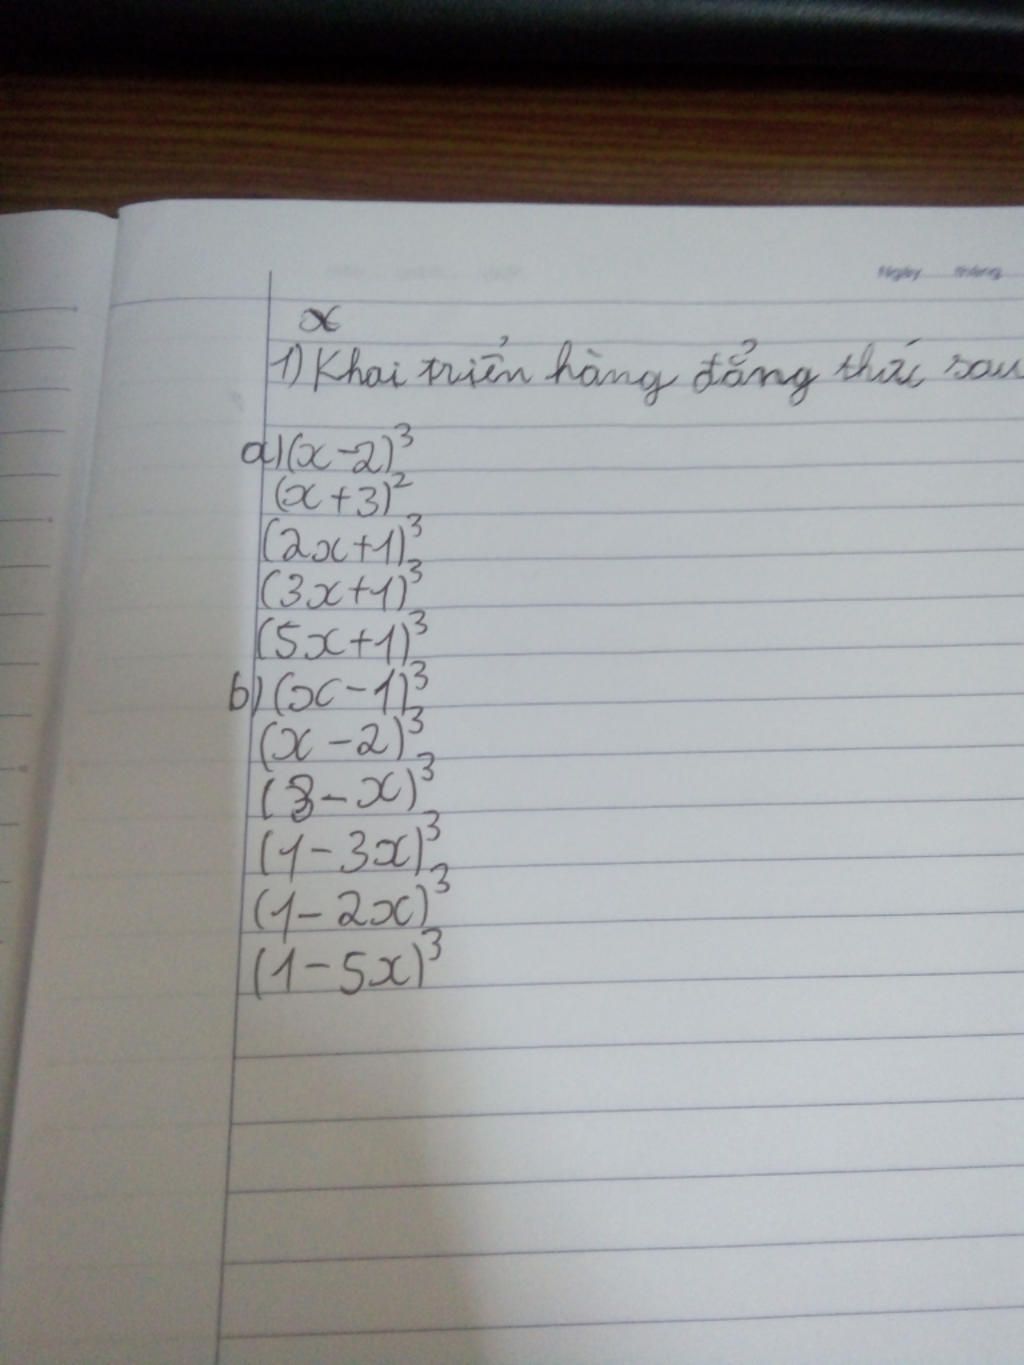 Ngày tháng
x
1) Khai triển hàng đẳng thức sau
a) (x-2)³
(x+3)²
(2x+1)³
(3x+1)³
(5x+1)³
b) (x-1)³
(x-2)³
(3-x)³
(1-3x)³
(1-2x)³
(1-5x)³